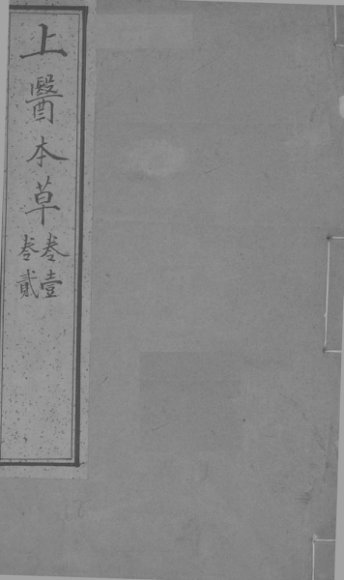 上醫本草
卷壹
卷貳